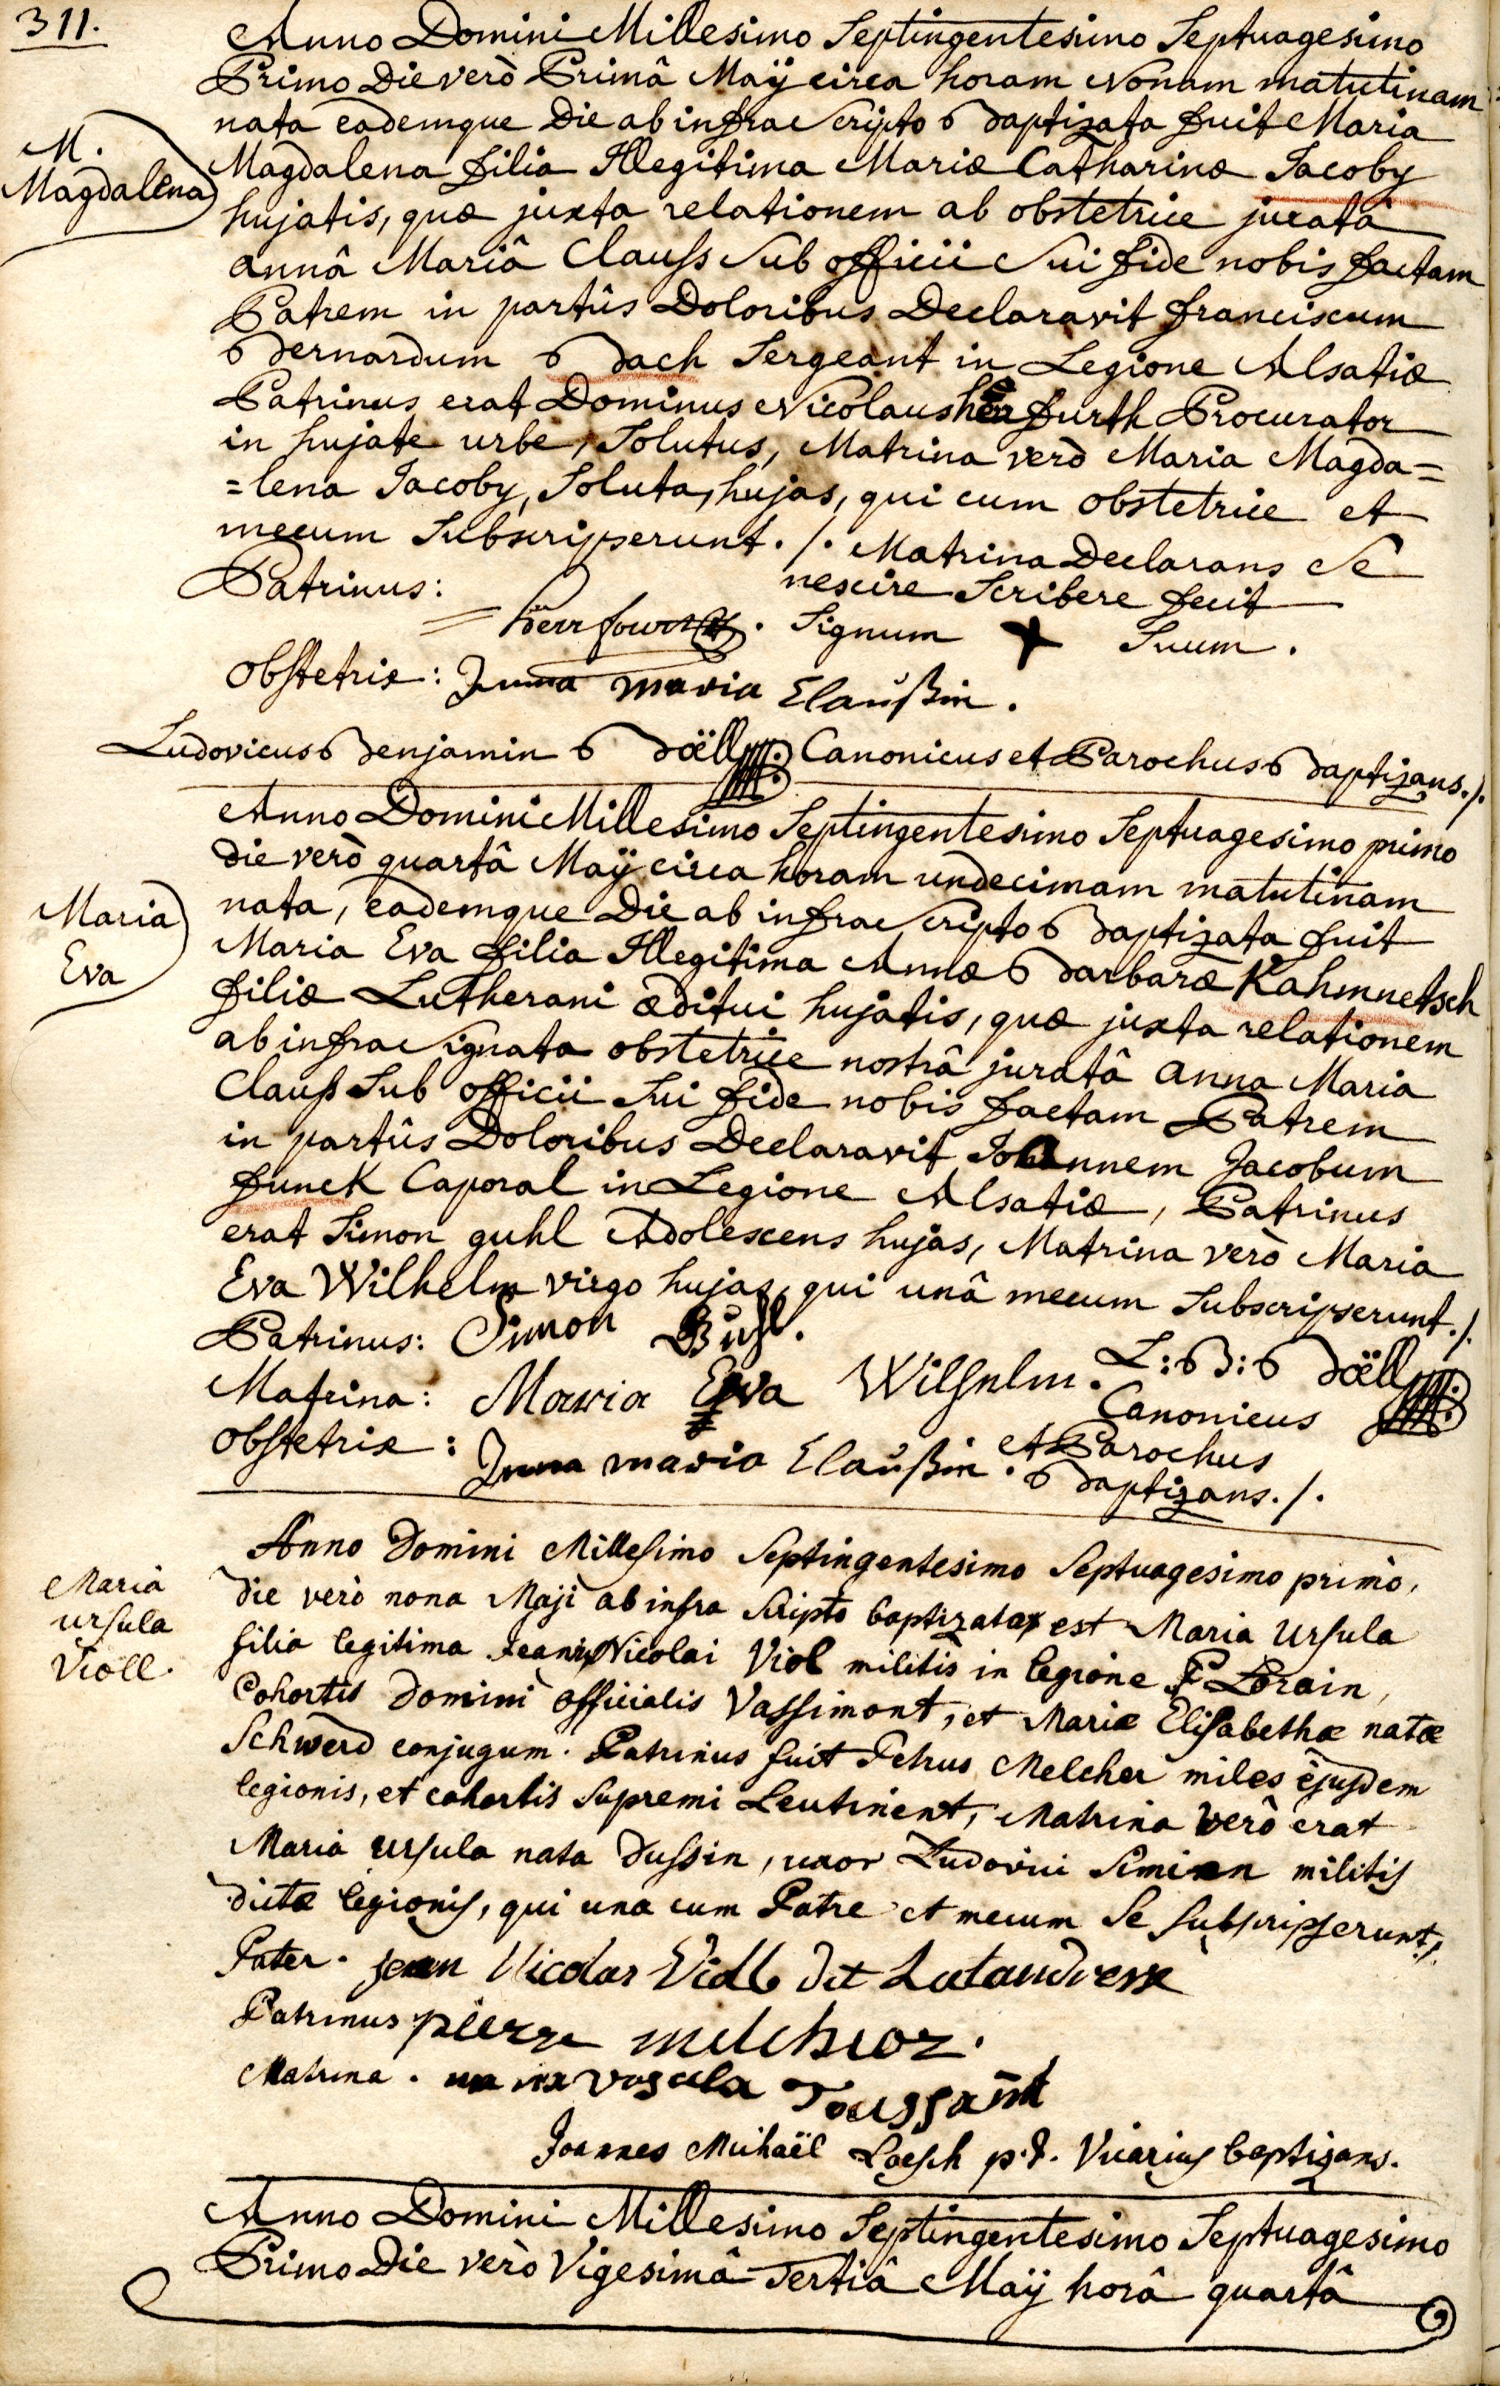 311.
Anno Domini Millesimo Septingentesimo Septuagesimo
Primo Die verò Primâ Maÿ circa horam Nonam matutinam
nata eademque Die ab infra Scripto Baptizata fuit Maria
M.
Magdalena
Magdalena filia Illegitima Mariæ Catharinæ Jacoby
hujatis, quæ juxta relationem ab obstetrice juratâ
annâ Mariâ Clauss Sub officii Sui fide nobis factam
Patrem in partûs Doloribus Declaravit franciscum
Bernardum Bach Sergeant in Legione Alsatiæ
Patrinus erat Dominus Nicolaus herfurth Procurator
in hujate urbe, Solutus, Matrina verò Maria Magda=
=lena Jacoby, Soluta, hujas, qui cum obstetrice et
mecum Subscripserunt ./. Matrina Declarans Se
Patrinus: nescire Scribere fecit
Signum + Suum.
Obstetrix: Anna maria Claußin.
Ludovicus Benjamin Boëll Canonicus et Parochus Baptizans ./.
Anno Domini Millesimo Septingentesimo Septuagesimo primo
die verò quartâ Maÿ circa horam undecimam matutinam
Maria
Eva
nata, eademque Die ab infra Scripto Baptizata fuit
Maria Eva filia Illegitima Annæ Barbaræ Kahmnetsch
filiæ Lutherani æditui hujatis, quæ juxta relationem
ab infra Signata obstetrice nostrâ juratâ Anna Maria
Clauss Sub officii Sui fide nobis factam Patrem
in partûs Doloribus Declaravit Johannem Jacobum
funck Caporal in Legione Alsatiæ, Patrinus
erat Simon guhl Adolescens hujas, Matrina verò Maria
Eva Wilhelm virgo hujas, qui unâ mecum Subscripserunt ./.
Patrinus: Simon Guhl.
Matrina: Maria Eva Wilhelm. L: B: Boëll
Canonicus
Obstetrix: Anna maria Claußin. et Parochus
Baptizans ./.
Anno Domini Millesimo Septingentesimo Septuagesimo primo,
Maria
Ursula
Violl.
die verò nona Maji ab infra Scripto baptizata est Maria Ursula
filia legitima Jeanis Nicolai Viol militis in legione Lorain,
Cohortis Domini officialis Vassimont, et Mariæ Elisabethæ natæ
Schwerd conjugum. Patrinus fuit Petrus Melcher miles ejusdem
legionis, et cohortis Supremi Leutinent, Matrina verò erat
Maria Ursula nata Dussin, uxor Ludovici Simien militis
dictæ legionis, qui una cum Patre et mecum Se Subscripserunt ./.
Pater. jean Nicolas Violl dit
Patrinus pierre melchior.
Matrina. maria vrsula Toussaint
Joannes Michaël Loesch p.t. Vicarius baptizans.
Anno Domini Millesimo Septingentesimo Septuagesimo
Primo Die verò Vigesimâ Tertiâ Maÿ horâ quartâ